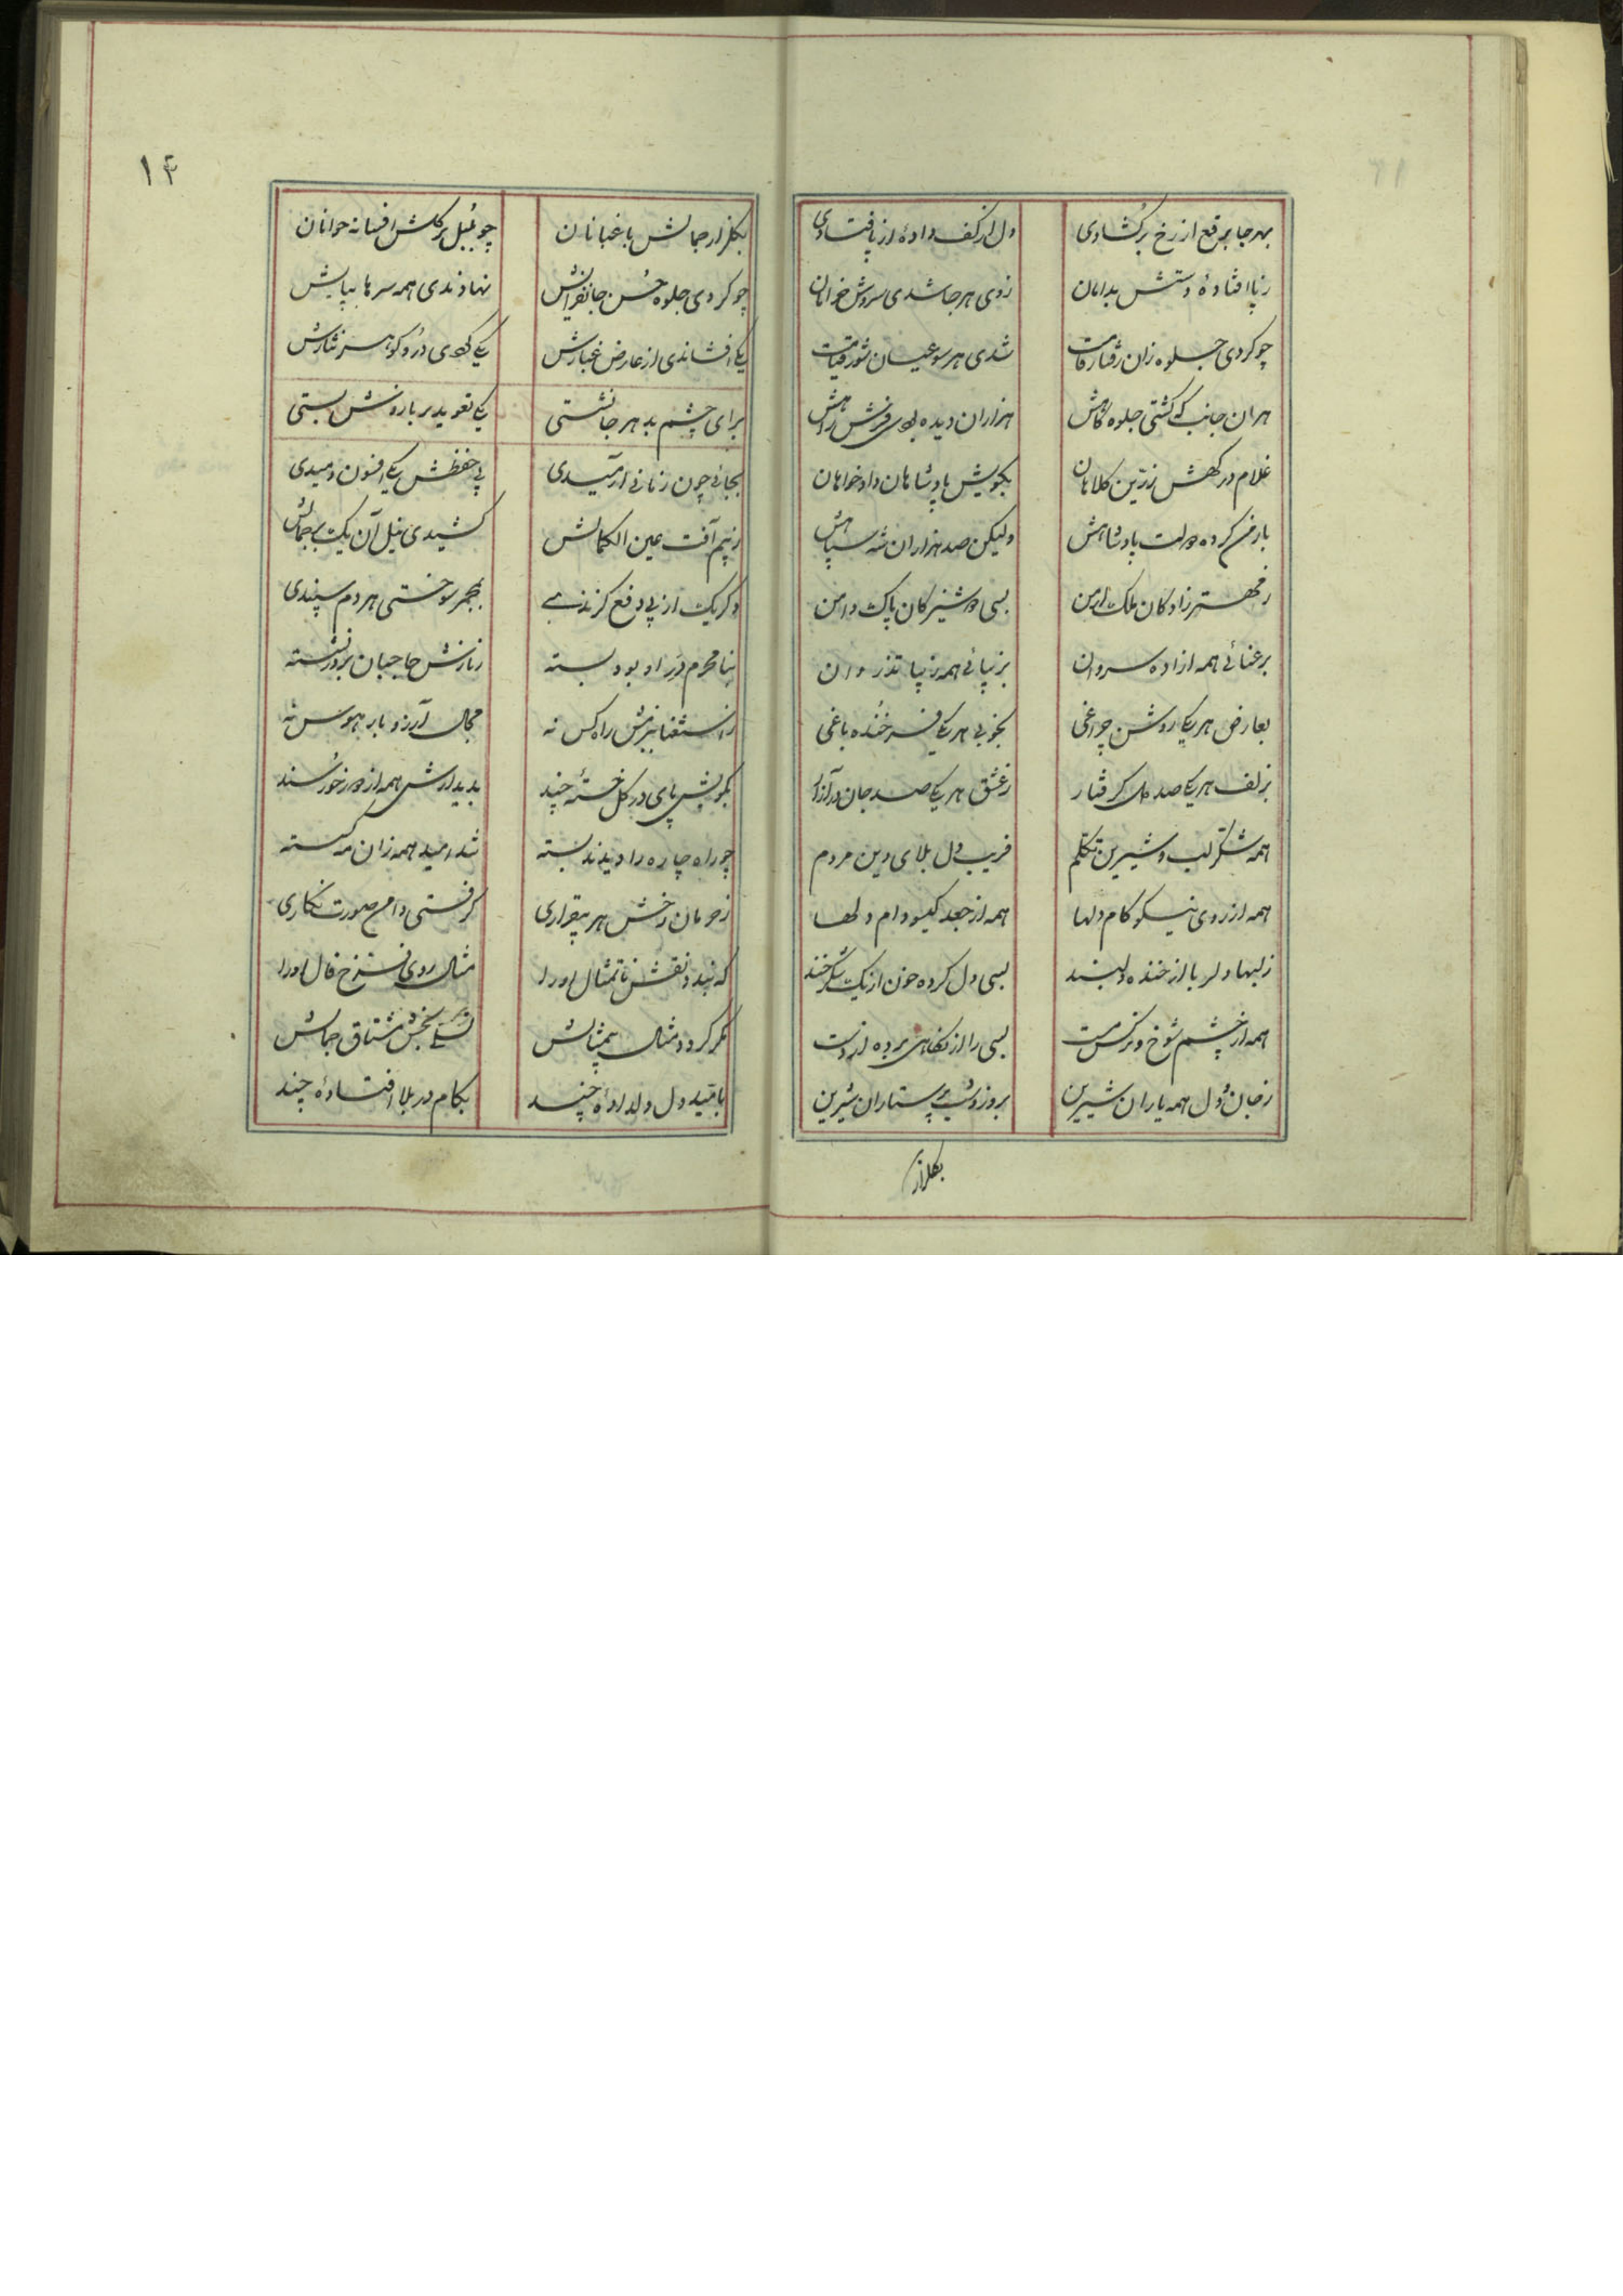 بهر جا برقع از رخ برکشادی دل از کف دادهٔ از پا فتادی
ز پا افتادهٔ دستش بدامان زدی هر جا شدی سروش خرامان
چو کردی جلوه زان رفتار قامت شدی هر سو عیان شور قیامت
هران جانب که گشتی جلوه گاهش هزاران دیده بودی فرش راهش
غلام درکهش زرین کلاهان بکویش پادشاهان داد خواهان
بارمن کرده دولت پادشاهش ولیکن صد هزاران شه سپاهش
ز مهتر زادکان ملک ارمن بسی دوشیزکان پاک دامن
برعنائی همه ازاده سروان بزیبائی همه زیبا تذروان
بعارض هر یکی روشن چراغی بخوبی هر یکی فرخنده باغی
بزلف هر یکی صد دل کرفتار ز عشق هر یکی صد جان در آزار
همه شکر لب و شیرین تکلم فریب دل بلای دین مردم
همه از روی نیکو کام دلها همه از جعد کیسو دام دلها
ز لبها دلربا از خنده دلبند بسی دل کرده خون از یک شکرخند
همه از چشم شوخ و نرکس مست بسی را از نکاهی برده از دست
ز جان و دل همه یاران شیرین بروز و شب پرستاران شیرین
بکلزار
۱۴
بکلزار جمالش باغبانان چو بلبل بر کلش افسانه خوانان
چو کردی جلوه حسن جانفزایش نهادندی همه سرها بپایش
یکی افشاندی از عارض غبارش یکی کردی در و کوهر نثارش
برای چشم بد هر جا نشستی یکی تعوید بر بازوش بستی
بجائی چون زمانی ارمیدی پی حفظش یکی افسون دمیدی
ز بیم آفت عین الکمالش کشیدی نیل آن یک بر جمالش
دکر یک از پی دفع کزندی بمجمر سوختی هر دم سپندی
بنامحرم در او بود بسته ز نازش حاجبان بر در نشسته
ز استغنا ببزمش راه کس نه مجال آرزو بار هوس نه
بکویش پای در کل خستهٔ چند بدیدارش همه از دور خورسند
چو راه چاره را دیدند بسته شد امید همه زان مه کسسته
ز حرمان رخش هر بیقراری کرفتی دامن صورت نکاری
که بندد نقش تا تمثال او را مثال روی فرخ فال او را
مکر کردد مثال بیمثالش تسلی بخش مشتاق جمالش
بامید دل دلدادهٔ چند بکام در بلا افتادهٔ چند